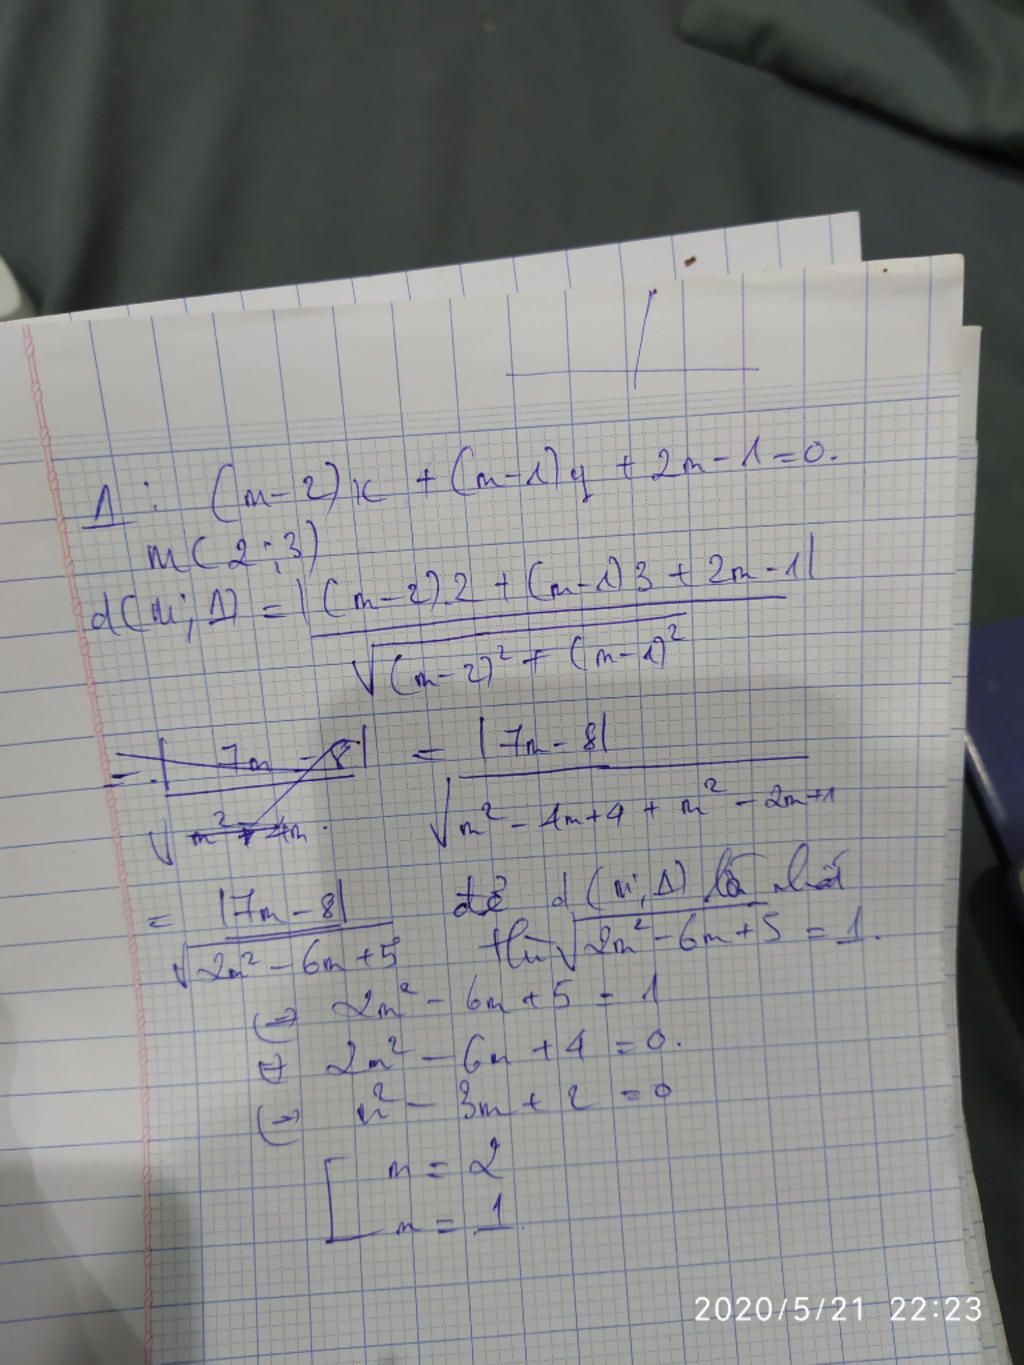 Δ : (m-2)x + (m-1)y + 2m - 1 = 0.
M(2;3)
d(M;Δ) = |(m-2).2 + (m-1)3 + 2m-1|
√(m-2)² + (m-1)²
= |7m - 8| = |7m - 8|
√m² + 4m. √m² - 4m+4 + m² - 2m+1
= |7m-8| để d(M;Δ) lớn nhất
√2m² - 6m+5 thì √2m² - 6m+5 = 1.
⇔ 2m² - 6m + 5 = 1
⇔ 2m² - 6m + 4 = 0.
⇔ m² - 3m + 2 = 0
[ m = 2
m = 1.
2020/5/21 22:23